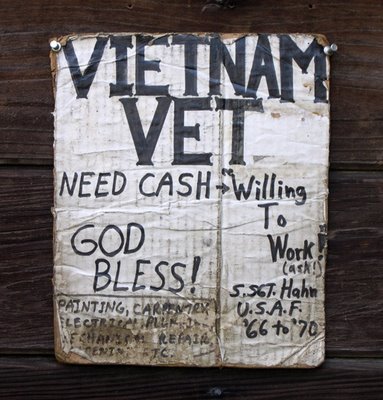 VIETNAM
VET
NEED CASH → Willing
To
Work!
(ask!)
GOD
BLESS!
S.SGT. Hahn
U.S.A.F.
'66 to '70
PAINTING, CARPENTRY
ELECTRICAL
MECHANICAL REPAIR
ETC.